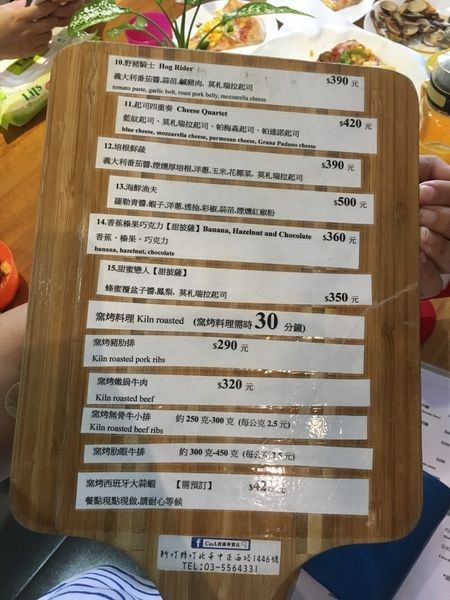 10.野豬騎士 Hog Rider
$390 元
義大利番茄醬,蒜苗,鹹豬肉, 莫札瑞拉起司
tomato paste, garlic bolt, roast pork belly, mozzarella cheese
11.起司四重奏 Cheese Quartet
$420 元
藍紋起司、莫札瑞拉起司、帕梅森起司、帕達諾起司
blue cheese, mozzarella cheese, parmesan cheese, Grana Padano cheese
12.培根鮮蔬
$390 元
義大利番茄醬,煙燻厚培根,洋蔥,玉米,花椰菜, 莫札瑞拉起司
13.海鮮漁夫
$500 元
羅勒青醬,蝦子,洋蔥,透抽,彩椒,蒜苗,煙燻紅椒粉
14.香蕉榛果巧克力【甜披薩】Banana, Hazelnut and Chocolate
$360 元
香蕉、榛果、巧克力
banana, hazelnut, chocolate
15.甜蜜戀人【甜披薩】
蜂蜜覆盆子醬,鳳梨, 莫札瑞拉起司
$350 元
窯烤料理 Kiln roasted (窯烤料理需時 30 分鐘)
窯烤豬肋排
$290 元
Kiln roasted pork ribs
窯烤嫩肩牛肉
$320 元
Kiln roasted beef
窯烤無骨牛小排 約 250 克-300 克 (每公克 2.5 元)
Kiln roasted beef ribs
窯烤肋眼牛排 約 300 克-450 克 (每公克 2.5 元)
窯烤西班牙大蒜蝦 【需預訂】 $420 元
餐點現點現做,請耐心等候
新竹縣竹北市中正西路1446號
TEL:03-5564331